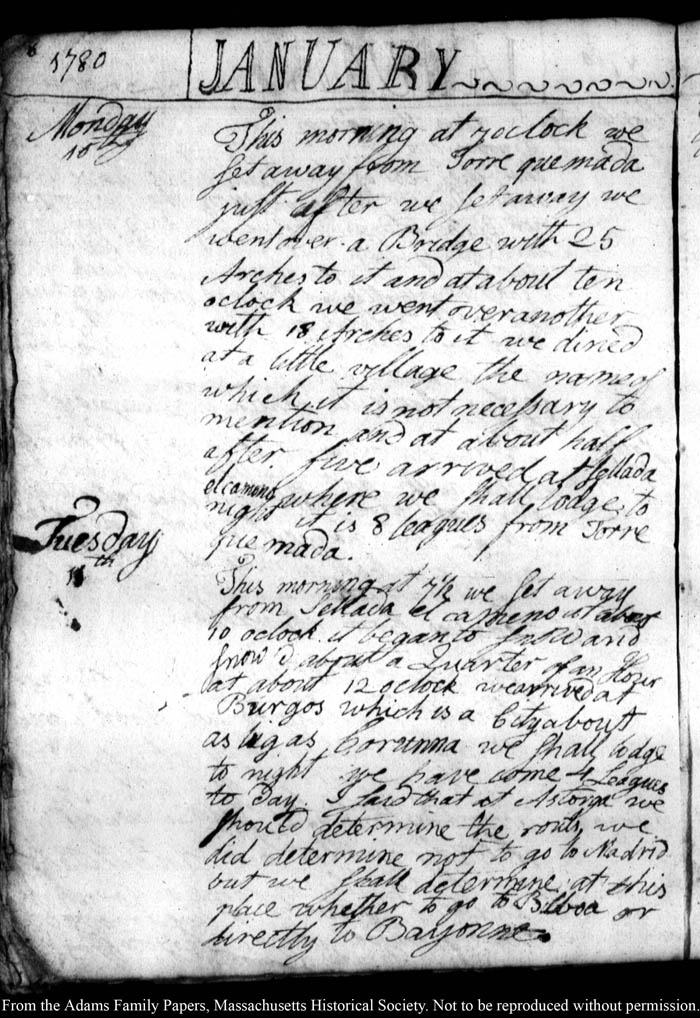 8
1780
JANUARY
Monday
10th
This morning at 7 oclock we
set away from Torre quemada
just after we set away we
went over a Bridge with 25
Arches to it and at about ten
oclock we went over another
with 18 Arches to it we dined
at a little village the name of
which it is not necessary to
mention and at about half
after five arrived at Sellada
el camino where we shall lodge to
night it is 8 leagues from Torre
quemada.
Tuesday
11th
This morning at 7 1/2 we set away
from Sellada el cameno at about
10 oclock it began to snow and
snow'd about a Quarter of an Hour
at about 12 oclock we arrived at
Burgos which is a City about
as big as Corunna we shall lodge
to night we have come 4 Leagues
to Day. I said that at Astorga we
should determine the route, we
did determine not to go to Madrid
but we shall determine at this
place whether to go to Bilboa or
directly to Bayonne.
From the Adams Family Papers, Massachusetts Historical Society. Not to be reproduced without permission.